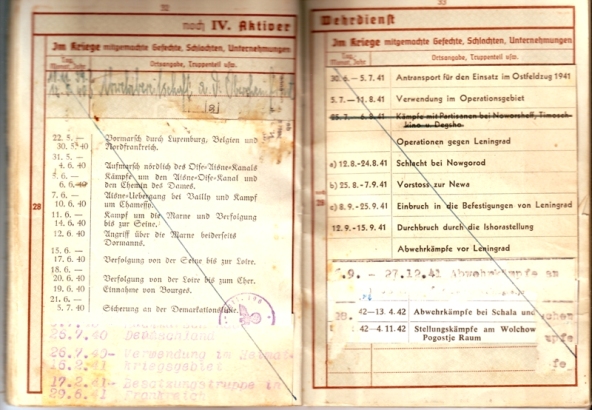 32
noch IV. Aktiver
Im Kriege mitgemachte Gefechte, Schlachten, Unternehmungen
Tag, Monat, Jahr
Ortsangabe, Truppenteil u/w.
22. 5. — Vormarsch durch Luxemburg, Belgien und
30. 5. 40 Nordfrankreich.
31. 5. —
4. 6. 40 Aufmarsch nördlich des Oise-Aisne-Kanals
5. 6. — Kämpfe um den Aisne-Oise-Kanal und
6. 6. 40 den Chemin des Dames.
7. 6. — Aisne-Uebergang bei Vailly und Kampf
10. 6. 40 um
11. 6. — Kampf um die Marne und Verfolgung
14. 6. 40 bis zur Seine.
12. 6. 40 Angriff über die Marne beiderseits
Dormanns.
15. 6. —
17. 6. 40 Verfolgung von der Seine bis zur Loire.
18. 6. —
20. 6. 40 Verfolgung von der Loire bis zum Cher.
19. 6. 40 Einnahme von Bourges.
21. 6. —
5. 7. 40 Sicherung an der Demarkationslinie.
28
25.9.40 Deutschland
26.9.40- Verwendung im Heimat-
16.2.41 kriegsgebiet
17.2.41- Besatzungstruppe in
29.6.41 Frankreich
33
Wehrdienst
Im Kriege mitgemachte Gefechte, Schlachten, Unternehmungen
Tag, Monat, Jahr
Ortsangabe, Truppenteil u/w.
30. 6. — 5.7. 41 Antransport für den Einsatz im Ostfeldzug 1941
5.7. — 11.8. 41 Verwendung im Operationsgebiet
25.7. — 6.8. 41 Kämpfe mit Partisanen bei
Operationen gegen Leningrad
a) 12.8.-24.8. 41 Schlacht bei Nowgorod
b) 25.8.-7.9. 41 Vorstoss zur Newa
c) 8.9.-25.9. 41 Einbruch in die Befestigungen von Leningrad
28
12.9.-15.9. 41 Durchbruch durch die Ishorastellung
Abwehrkämpfe vor Leningrad
.9. — 27.12.41 Abwehrkämpfe an
42—13.4. 42 Abwehrkämpfe bei Schala und
42—4.11. 42 Stellungskämpfe am Wolchow
Pogostje Raum